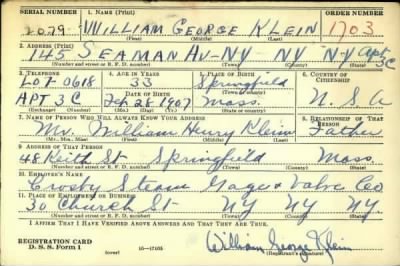 SERIAL NUMBER 1. NAME (Print) ORDER NUMBER
2079 WILLIAM GEORGE KLEIN 1703
(First) (Middle) (Last)
2. ADDRESS (Print)
145 SEAMAN AV-NY NY NY Apt 3C
(Number and street or R. F. D. number) (Town) (County) (State)
3. TELEPHONE 4. AGE IN YEARS 5. PLACE OF BIRTH 6. COUNTRY OF CITIZENSHIP
LO7-0618 33 Springfield
(Town or county)
APT 3C DATE OF BIRTH Feb 28 1907 Mass. U.S.A
(Exchange) (Number) (Mo.) (Day) (Yr.) (State or country)
7. NAME OF PERSON WHO WILL ALWAYS KNOW YOUR ADDRESS 8. RELATIONSHIP OF THAT PERSON
Mr. William Henry Klein Father
(Mr., Mrs., Miss) (First) (Middle) (Last)
9. ADDRESS OF THAT PERSON
48 Keith St Springfield Mass.
(Number and street or R. F. D. number) (Town) (County) (State)
10. EMPLOYER'S NAME
Crosby Steam Gage & Valve Co
11. PLACE OF EMPLOYMENT OR BUSINESS
30 Church St NY NY NY.
(Number and street or R. F. D. number) (Town) (County) (State)
I AFFIRM THAT I HAVE VERIFIED ABOVE ANSWERS AND THAT THEY ARE TRUE.
REGISTRATION CARD
D. S. S. Form 1 (over) William George Klein
(Registrant's signature)